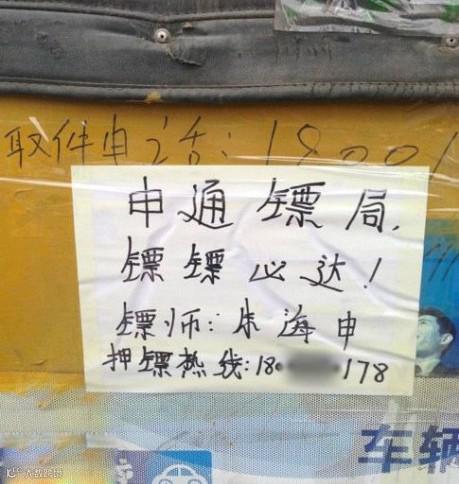 取件电话:18001
申通镖局.
镖镖必达!
镖师:朱海申
押镖热线:18 178
车辆
大数跨境